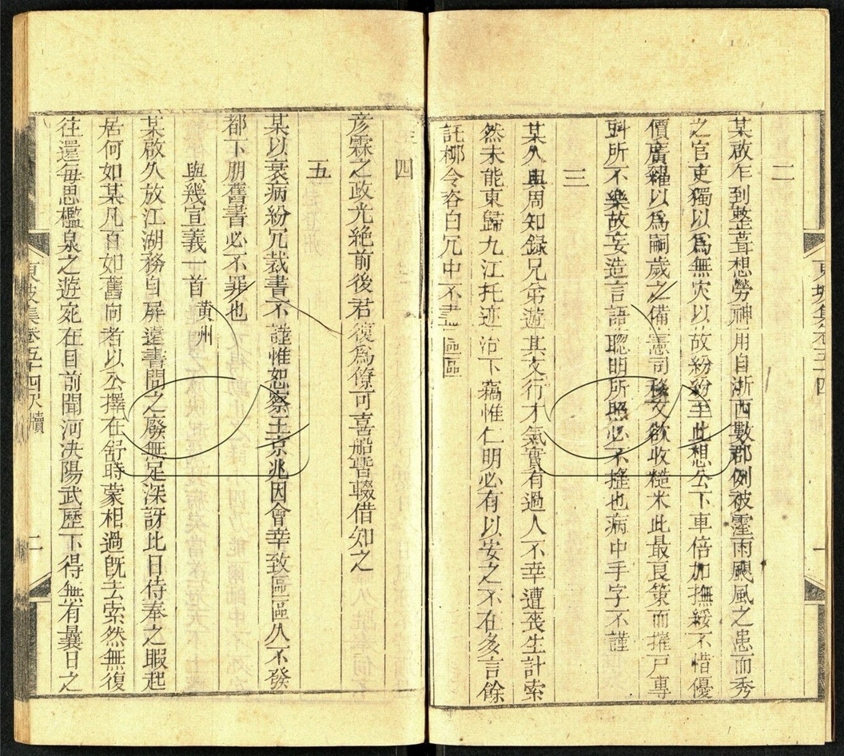 東坡集卷五十四
二
某啟乍到整葺想勞神用自浙西數郡例被霪雨颶風之患而秀
之官吏獨以爲無灾以故紛紛至此想公下車倍加撫綏不惜優
價廣糴以爲嗣歲之備憲司移文欲收糙米此最良策而㩁戶專
㪷所不樂故妄造言語聰明所照必不搖也病中手字不謹
三
某久與周知録兄弟遊其文行才氣實有過人不幸遭喪生計索
然未能東歸九江托迹治下竊惟仁明必有以安之不在多言餘
託栁令咨白冗中不盡區區
四
彥霖之政光絶前後君復爲僚可喜船暫輟借知之
五
某以衰病紛冗裁書不謹惟恕察王京兆因會幸致區區久不發
都下朋舊書必不罪也
與幾宣義一首 黃州
某啟久放江湖務自屏遠書問之廢無足深訝比日侍奉之暇起
居何如某凡百如舊向者以公擇在舒時蒙相過旣去索然無復
往還每思檻泉之遊宛在目前聞河決陽武歷下得無有曩日之
東坡集卷五十四尺牘
二